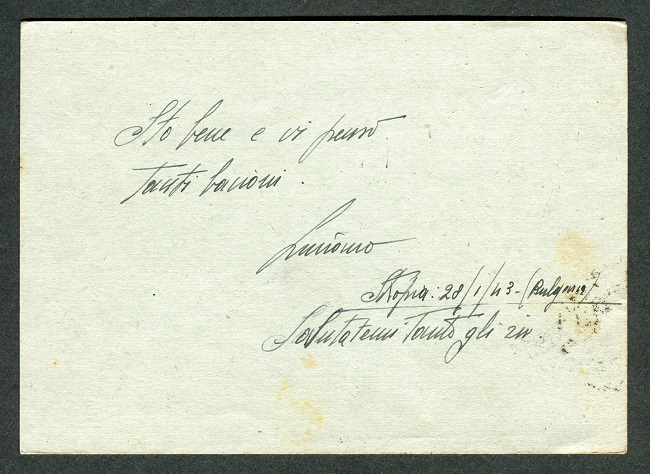 Sto bene e vi penso.
Tanti bacioni.
Luciano
Skopia: 28/1/43-(Bulgaria)
Salutatemi tanto gli zii